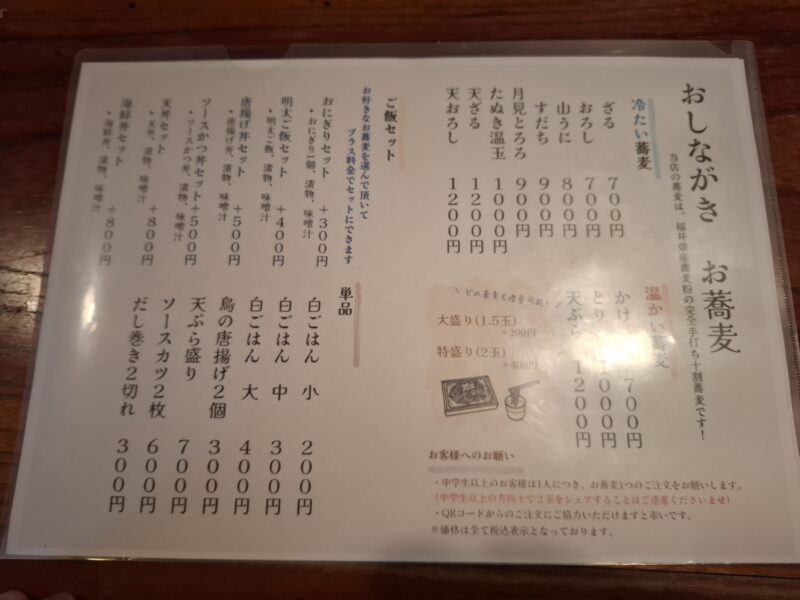 おしながき お蕎麦
当店の蕎麦は、福井県産蕎麦粉の完全手打ち十割蕎麦です!
冷たい蕎麦
ざる 700円
おろし 700円
山うに 800円
すだち 900円
月見とろろ 900円
たぬき温玉 1000円
天ざる 1200円
天おろし 1200円
温かい蕎麦
かけ 700円
とり 1000円
天ぷら 1200円
どの蕎麦も増量可能!
大盛り(1.5玉)
+200円
特盛り(2玉)
+400円
お客様へのお願い
・中学生以上のお客様は1人につき、お蕎麦1つのご注文をお願いします。
(中学生以上の方同士で2玉をシェアすることはご遠慮くださいませ)
・QRコードからのご注文にご協力いただけますと幸いです。
※価格は全て税込表示となっております。
ご飯セット
お好きなお蕎麦を選んで頂いて
プラス料金でセットにできます
おにぎりセット +300円
・おにぎり1個、漬物、味噌汁
明太ご飯セット +400円
・明太ご飯、漬物、味噌汁
唐揚げ丼セット +500円
・唐揚げ丼、漬物、味噌汁
ソースかつ丼セット +500円
・ソースかつ丼、漬物、味噌汁
天丼セット +800円
・天丼、漬物、味噌汁
海鮮丼セット +800円
・海鮮丼、漬物、味噌汁
単品
白ごはん 小 200円
白ごはん 中 300円
白ごはん 大 400円
鳥の唐揚げ2個 300円
天ぷら盛り 700円
ソースカツ2枚 600円
だし巻き2切れ 300円